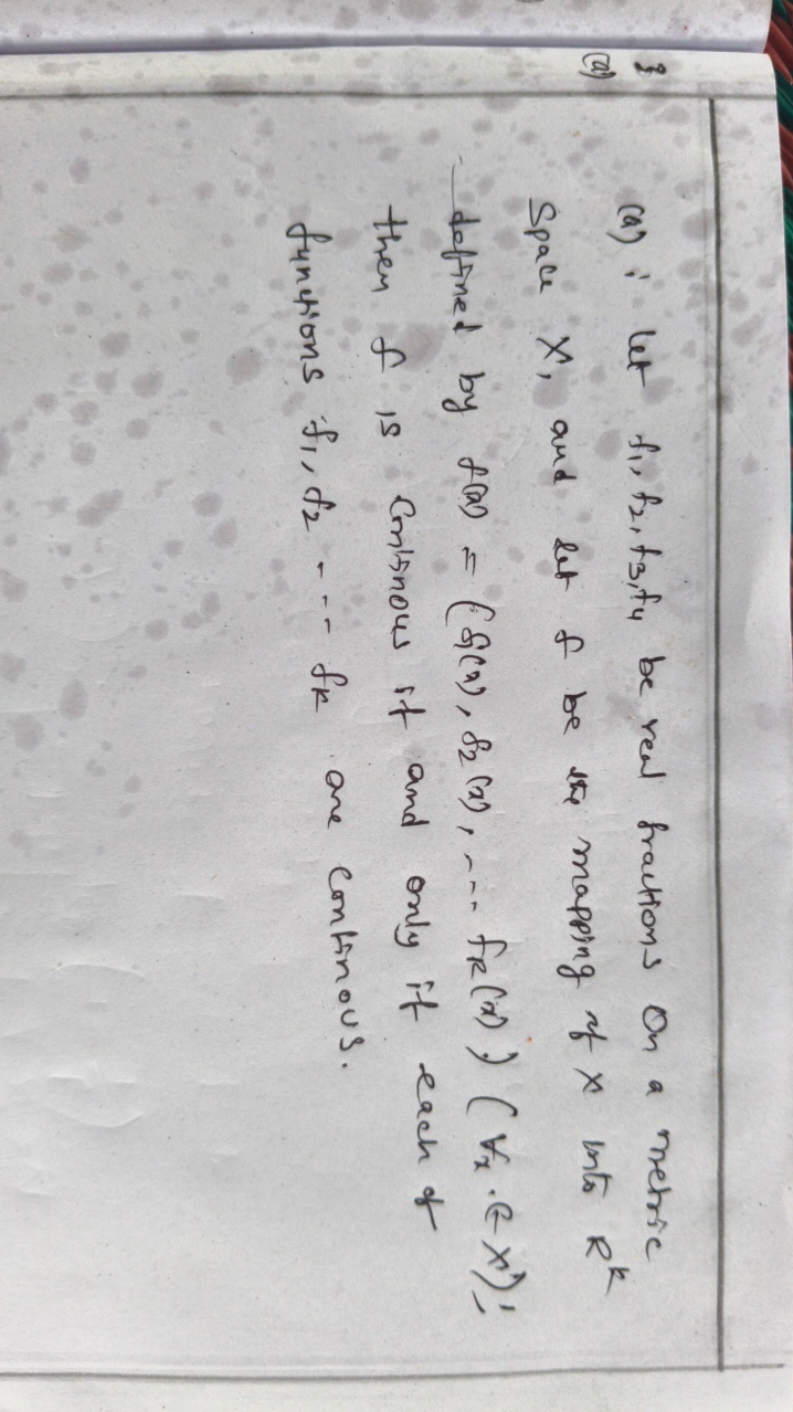 (a)
(a) : let f1, f2, f3, f4 be real fractions on a metric
Space X, and let f be the mapping of X into R^k
defined by f(x) = (f1(x), f2(x), --- fk(x)) (∀x ∈ X);
then f is continous if and only if each of
functions f1, f2 --- fk are continous.